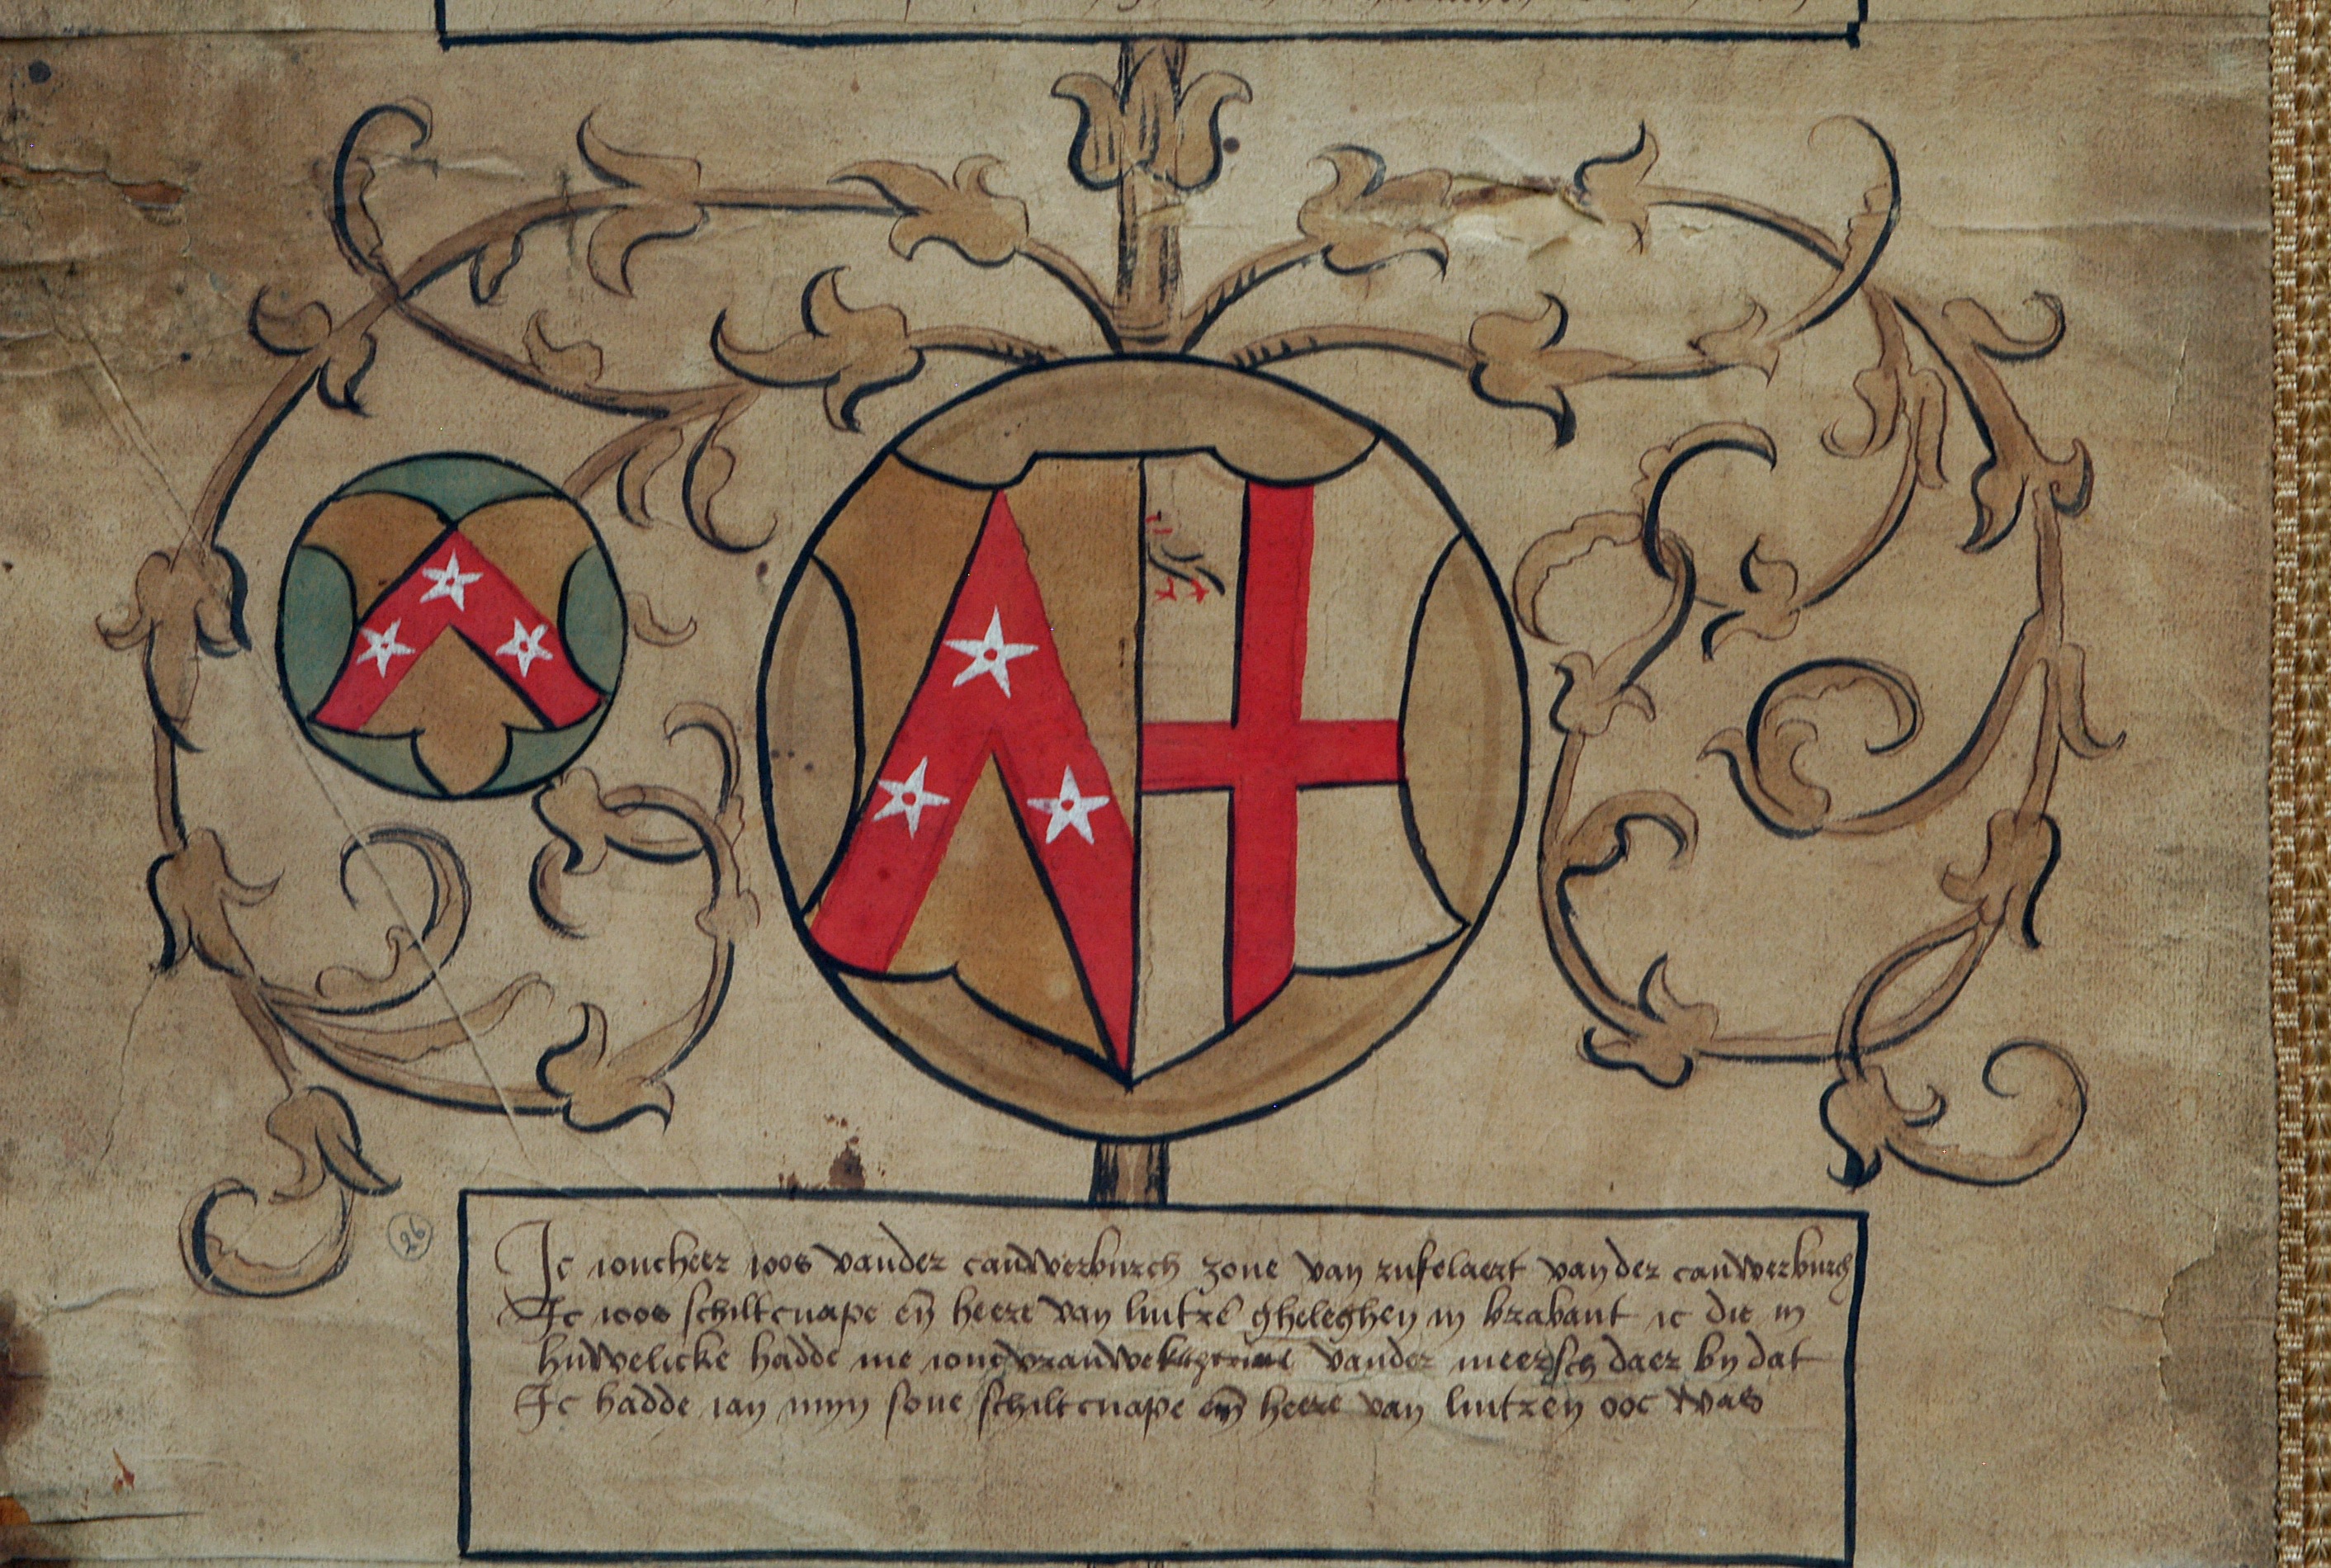 26
Ic ioncheer ioos vander cauwerburch zone van rufelaert vander cauwerburch
Ic ioos schiltcnape en̄ heere van lintzē gheleghen in brabant ic die in
huwelicke hadde me ioncvrauwe vander meersch daer by dat
Ic hadde ian myn sone schiltcnape en̄ heere van lintzen ooc was